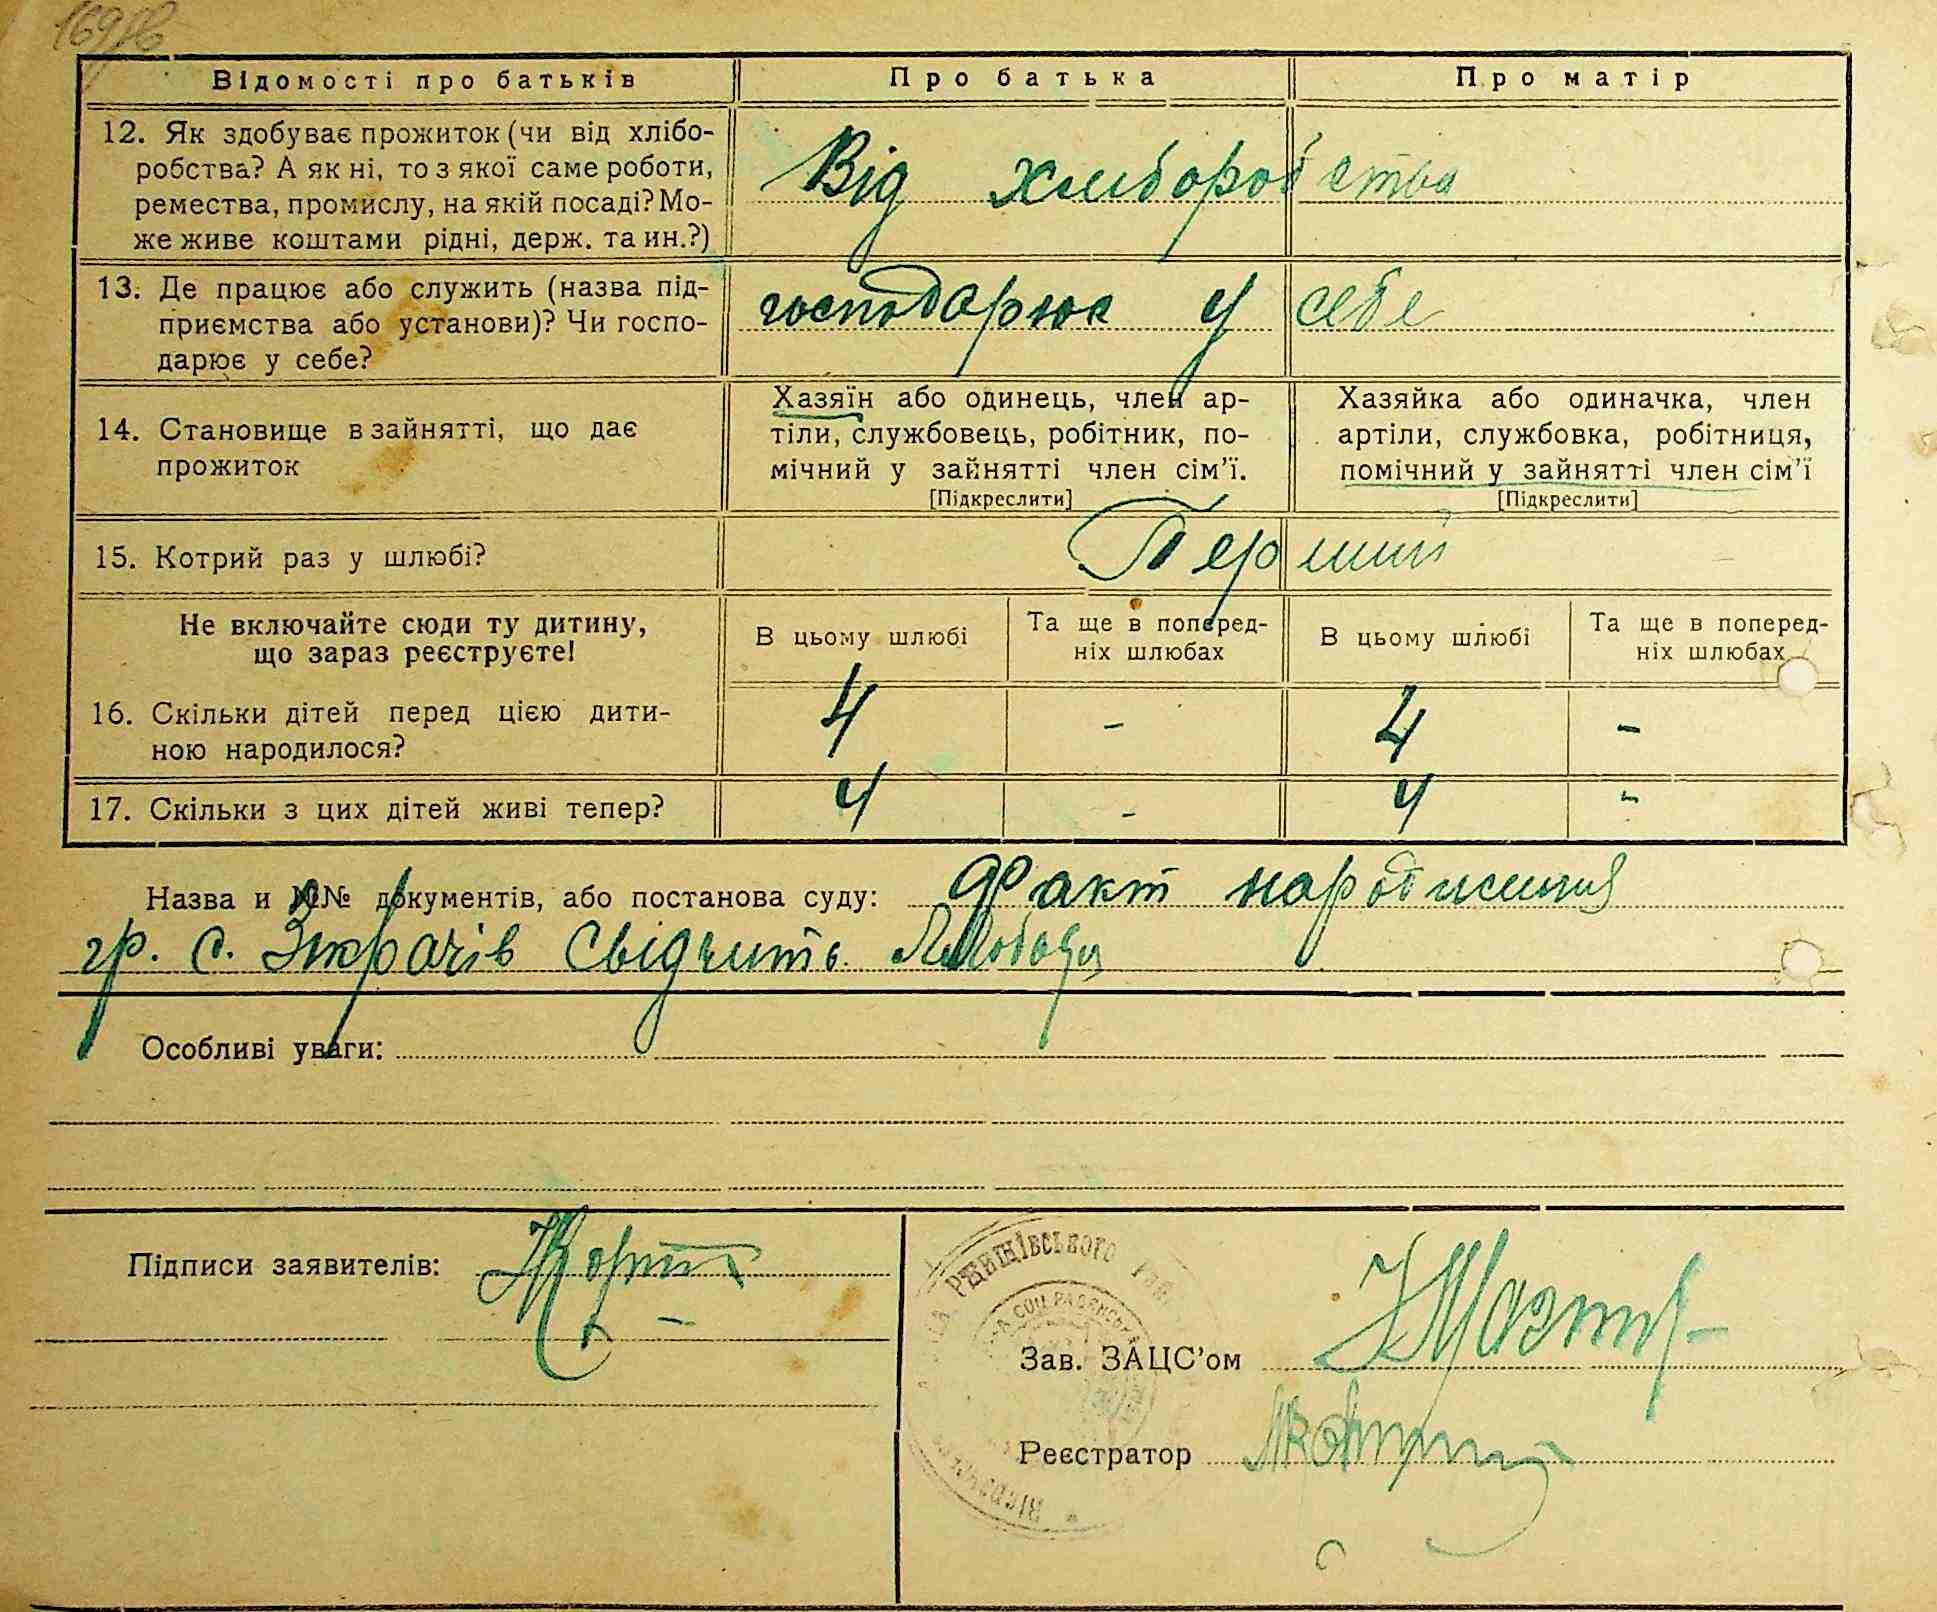 169
Відомості про батьків
Про батька
Про матір
12. Як здобуває прожиток (чи від хлібо-
робства? А як ні, то з якої саме роботи,
ремества, промислу, на якій посаді? Мо-
же живе коштами рідні, держ. та ин.?)
Від хліборобства
13. Де працює або служить (назва під-
приємства або установи)? Чи госпо-
дарює у себе?
господарює у себе
14. Становище в зайнятті, що дає
прожиток
Хазяїн або одинець, член ар-
тіли, службовець, робітник, по-
мічний у зайнятті член сім'ї.
[Підкреслити]
Хазяйка або одиначка, член
артіли, службовка, робітниця,
помічний у зайнятті член сім'ї
[Підкреслити]
15. Котрий раз у шлюбі?
Перший
Не включайте сюди ту дитину,
що зараз реєструєте!
В цьому шлюбі
Та ще в поперед-
ніх шлюбах
В цьому шлюбі
Та ще в поперед-
ніх шлюбах
16. Скільки дітей перед цією дити-
ною народилося?
4 - 4 -
17. Скільки з цих дітей живі тепер?
4 - 4 -
Назва и №№ документів, або постанова суду: Факт народження
гр. с. Зікрачів свідчить
Особливі уваги:
Підписи заявителів:
РЖИЩІВСЬКОГО
СОЦ. РАДЯНСЬКА
Зав. ЗАЦС'ом
Реєстратор